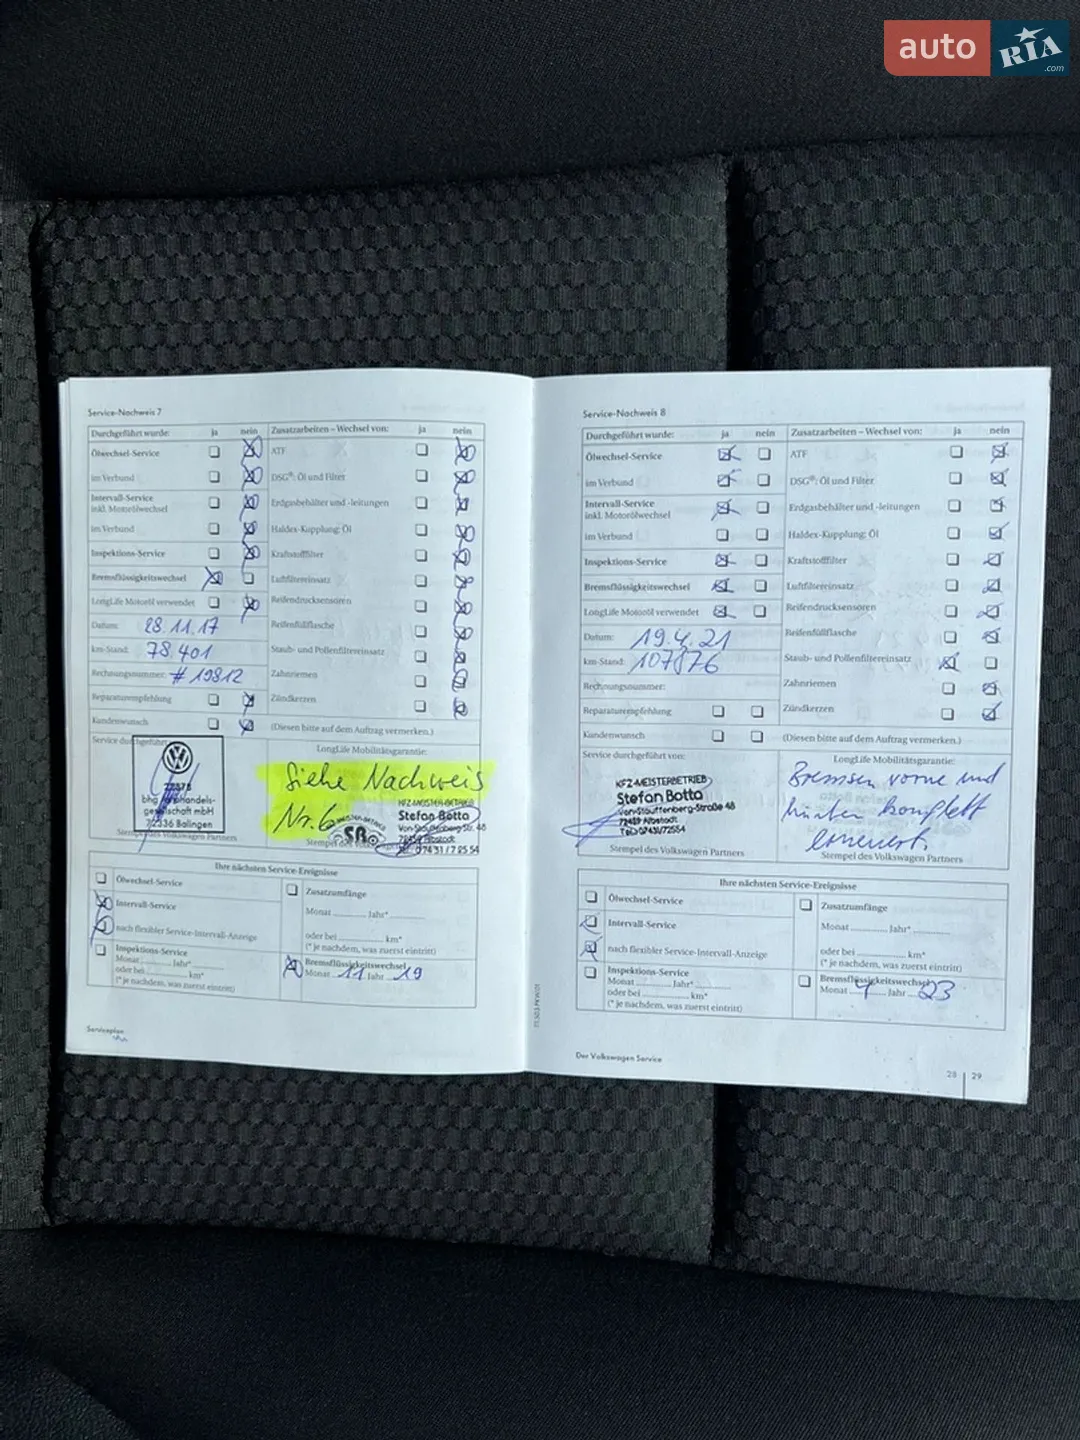 auto RIA.com
Service-Nachweis 7
Durchgeführt wurde: ja nein Zusatzarbeiten – Wechsel von: ja nein
Ölwechsel-Service ATF
im Verbund DSG®: Öl und Filter
Intervall-Service
inkl. Motorölwechsel Erdgasbehälter und -leitungen
im Verbund Haldex-Kupplung: Öl
Inspektions-Service Kraftstofffilter
Bremsflüssigkeitswechsel Luftfiltereinsatz
LongLife Motoröl verwendet Reifendrucksensoren
Datum: 28.11.17 Reifenfüllflasche
km-Stand: 78.401 Staub- und Pollenfiltereinsatz
Rechnungsnummer: #19812 Zahnriemen
Reparaturempfehlung Zündkerzen
Kundenwunsch (Diesen bitte auf dem Auftrag vermerken.)
Service durchgeführt LongLife Mobilitätsgarantie:
Siehe Nachweis
Nr. 6
bhg
gesellschaft mbH
72336 Balingen
KFZ-MEISTER-BETRIEB
Stefan Botta
Von-Stauffenberg-Str. 48
72459 Albstadt
SB
Stempel des Volkswagen Partners
Ihre nächsten Service-Ereignisse
Ölwechsel-Service Zusatzumfänge
Intervall-Service Monat Jahr*
nach flexibler Service-Intervall-Anzeige oder bei km*
(* je nachdem, was zuerst eintritt)
Inspektions-Service Bremsflüssigkeitswechsel
Monat Jahr* Monat 11 Jahr 19
oder bei km*
(* je nachdem, was zuerst eintritt)
Serviceplan
Service-Nachweis 8
Durchgeführt wurde: ja nein Zusatzarbeiten – Wechsel von: ja nein
Ölwechsel-Service ATF
im Verbund DSG®: Öl und Filter
Intervall-Service
inkl. Motorölwechsel Erdgasbehälter und -leitungen
im Verbund Haldex-Kupplung: Öl
Inspektions-Service Kraftstofffilter
Bremsflüssigkeitswechsel Luftfiltereinsatz
LongLife Motoröl verwendet Reifendrucksensoren
Datum: 19.4.21 Reifenfüllflasche
km-Stand: 107876 Staub- und Pollenfiltereinsatz
Rechnungsnummer: Zahnriemen
Reparaturempfehlung Zündkerzen
Kundenwunsch (Diesen bitte auf dem Auftrag vermerken.)
Service durchgeführt von: LongLife Mobilitätsgarantie:
KFZ-MEISTERBETRIEB
Stefan Botta
Von-Stauffenberg-Straße 48
72459 Albstadt
Tel. 07431/72554
Bremsen vorne und
hinten komplett
erneuert.
Stempel des Volkswagen Partners Stempel des Volkswagen Partners
Ihre nächsten Service-Ereignisse
Ölwechsel-Service Zusatzumfänge
Intervall-Service Monat Jahr*
nach flexibler Service-Intervall-Anzeige oder bei km*
(* je nachdem, was zuerst eintritt)
Inspektions-Service Bremsflüssigkeitswechsel
Monat Jahr* Monat 4 Jahr 23
oder bei km*
(* je nachdem, was zuerst eintritt)
Der Volkswagen Service
28 | 29